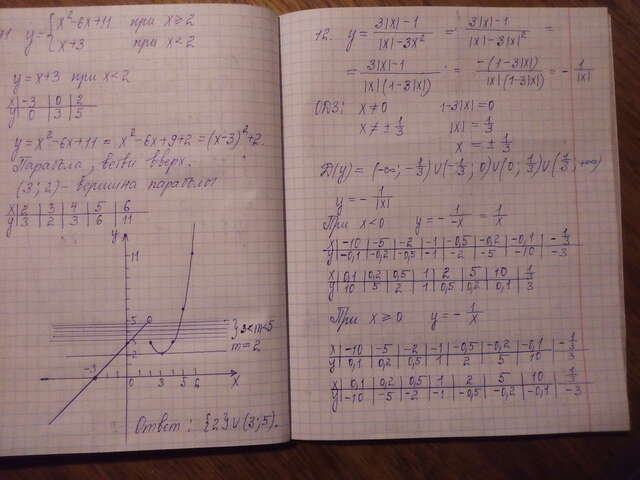 y = { x²-6x+11 при x≥2
x+3 при x<2
y = x+3 при x<2
x | -3 | 0 | 2
y | 0 | 3 | 5
y = x²-6x+11 = x²-6x+9+2 = (x-3)²+2.
Парабола, ветви вверх.
(3; 2) - вершина параболы
x | 2 | 3 | 4 | 5 | 6
y | 3 | 2 | 3 | 6 | 11
y
11
5
3
2
3<m<5
m=2
-3 0 2 3 4 5 6 x
Ответ: {2}∪(3;5).
12. y = (3|x|-1)/(|x|-3x²) = (3|x|-1)/(|x|-3|x|²) =
= (3|x|-1)/(|x|(1-3|x|)) = -(1-3|x|)/(|x|(1-3|x|)) = -1/|x|
ОДЗ: x≠0 1-3|x|=0
x≠±1/3 |x|=1/3
x=±1/3
D(y) = (-∞; -1/3)∪(-1/3; 0)∪(0; 1/3)∪(1/3; +∞)
y = -1/|x|
При x<0 y = -1/-x = 1/x
x | -10 | -5 | -2 | -1 | -0,5 | -0,2 | -0,1 | -1/3
y | -0,1 | -0,2 | -0,5 | -1 | -2 | -5 | -10 | -3
x | 0,1 | 0,2 | 0,5 | 1 | 2 | 5 | 10 | 1/3
y | 10 | 5 | 2 | 1 | 0,5 | 0,2 | 0,1 | 3
При x≥0 y = -1/x
x | -10 | -5 | -2 | -1 | -0,5 | -0,2 | -0,1 | -1/3
y | 0,1 | 0,2 | 0,5 | 1 | 2 | 5 | 10 | 3
x | 0,1 | 0,2 | 0,5 | 1 | 2 | 5 | 10 | 1/3
y | -10 | -5 | -2 | -1 | -0,5 | -0,2 | -0,1 | -3